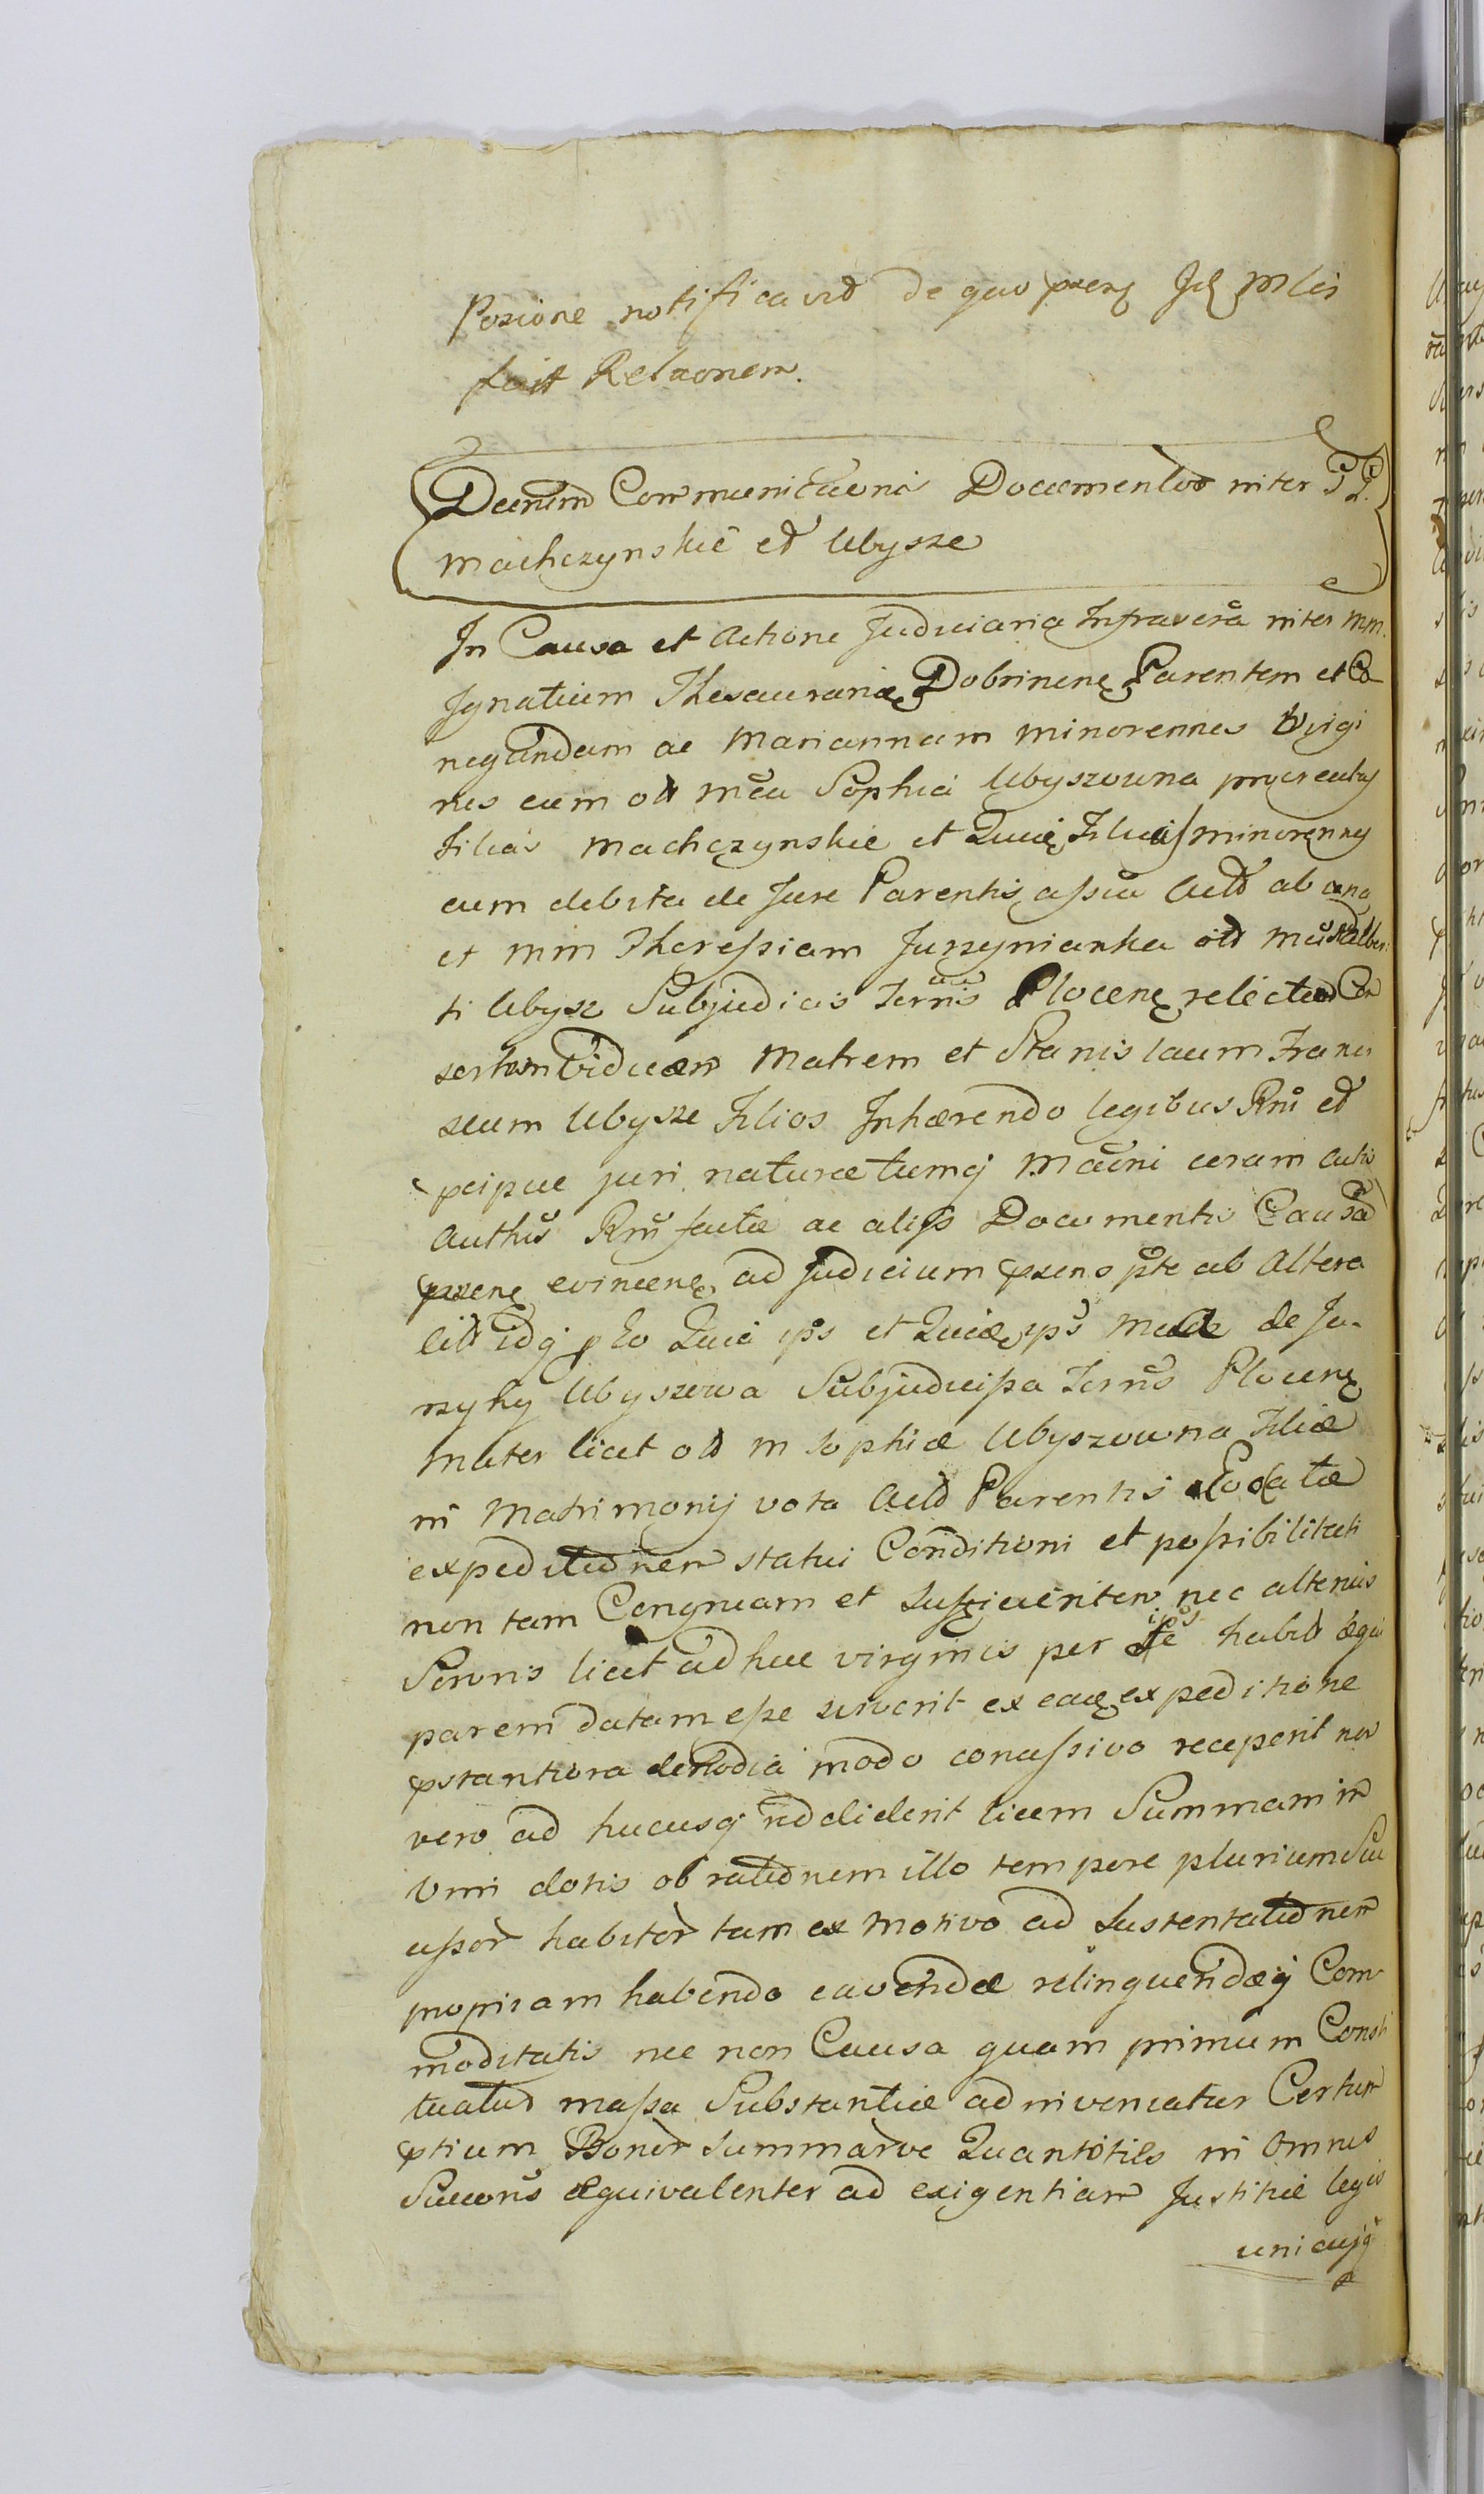 Posione notificavit de quo pnens Jd Mlis
fecit Relaonem.
Decretum Communicaonis Documentor inter
Machczynskie et Ubysze
In Causa et Actione Judiciaria Infrascra inter MM.
Ignatium Thesaurariae Dobrinens Parentem et Co
negundam ac Mariannam minorennes Virgi
nes cum olt Mca Sophia Ubyszowna procreatas
Filias Machczynskie et Quidem Filias minorennes
cum debita de Jure Parentis assia Actt ab una
et Mm Theressiam Juszynianka olt Adalber
ti Ubysz Subjudicis Terris Plocens relictam Con
sortem Viduam Matrem et Stanislaum Franci
scum Ubysze Filios Inhærendo legibus Rni et
pcipue juri naturæ tumq
Authus Rni factæ ac alijs Documentis Causa
pnens evincens ad Judicium pnens pte ab Altera
citt idq p Eo Quia ips et Quidem ips Mcæ de Ju-
szyky Ubyszowa Subjudicissa Terris Plocens
Mater licet olt M Sophiæ Ubyszowna Filiæ
in Matrimonij vota Actt Parentis Elocatæ
expeditionem statui Conditioni et possibilitati
non tam Congruam et Sufficientem nec alterius
Sororis licet adhuc virginis per ipos habit æqui
parem datam esse sciverit ex eaq expeditione
pstantiora clenodia modo concessivo receperit nec
vero ad hucusq reddiderit licem Summam in
Vim dotis ob rationem illo tempore plurium Suc
cessor habitor tam ex motivo ad Sustentationem
propriam habendo cavendæ relinquendæq Com
moditatis nec non Causa quam primum Consti
tuatur massa Substantiæ ad inveniatur Certum
ptium Bonor Summarve Quantitates in Omnes
Succoris æquivalenter ad exigentiam Justitiæ legis
unicuiq